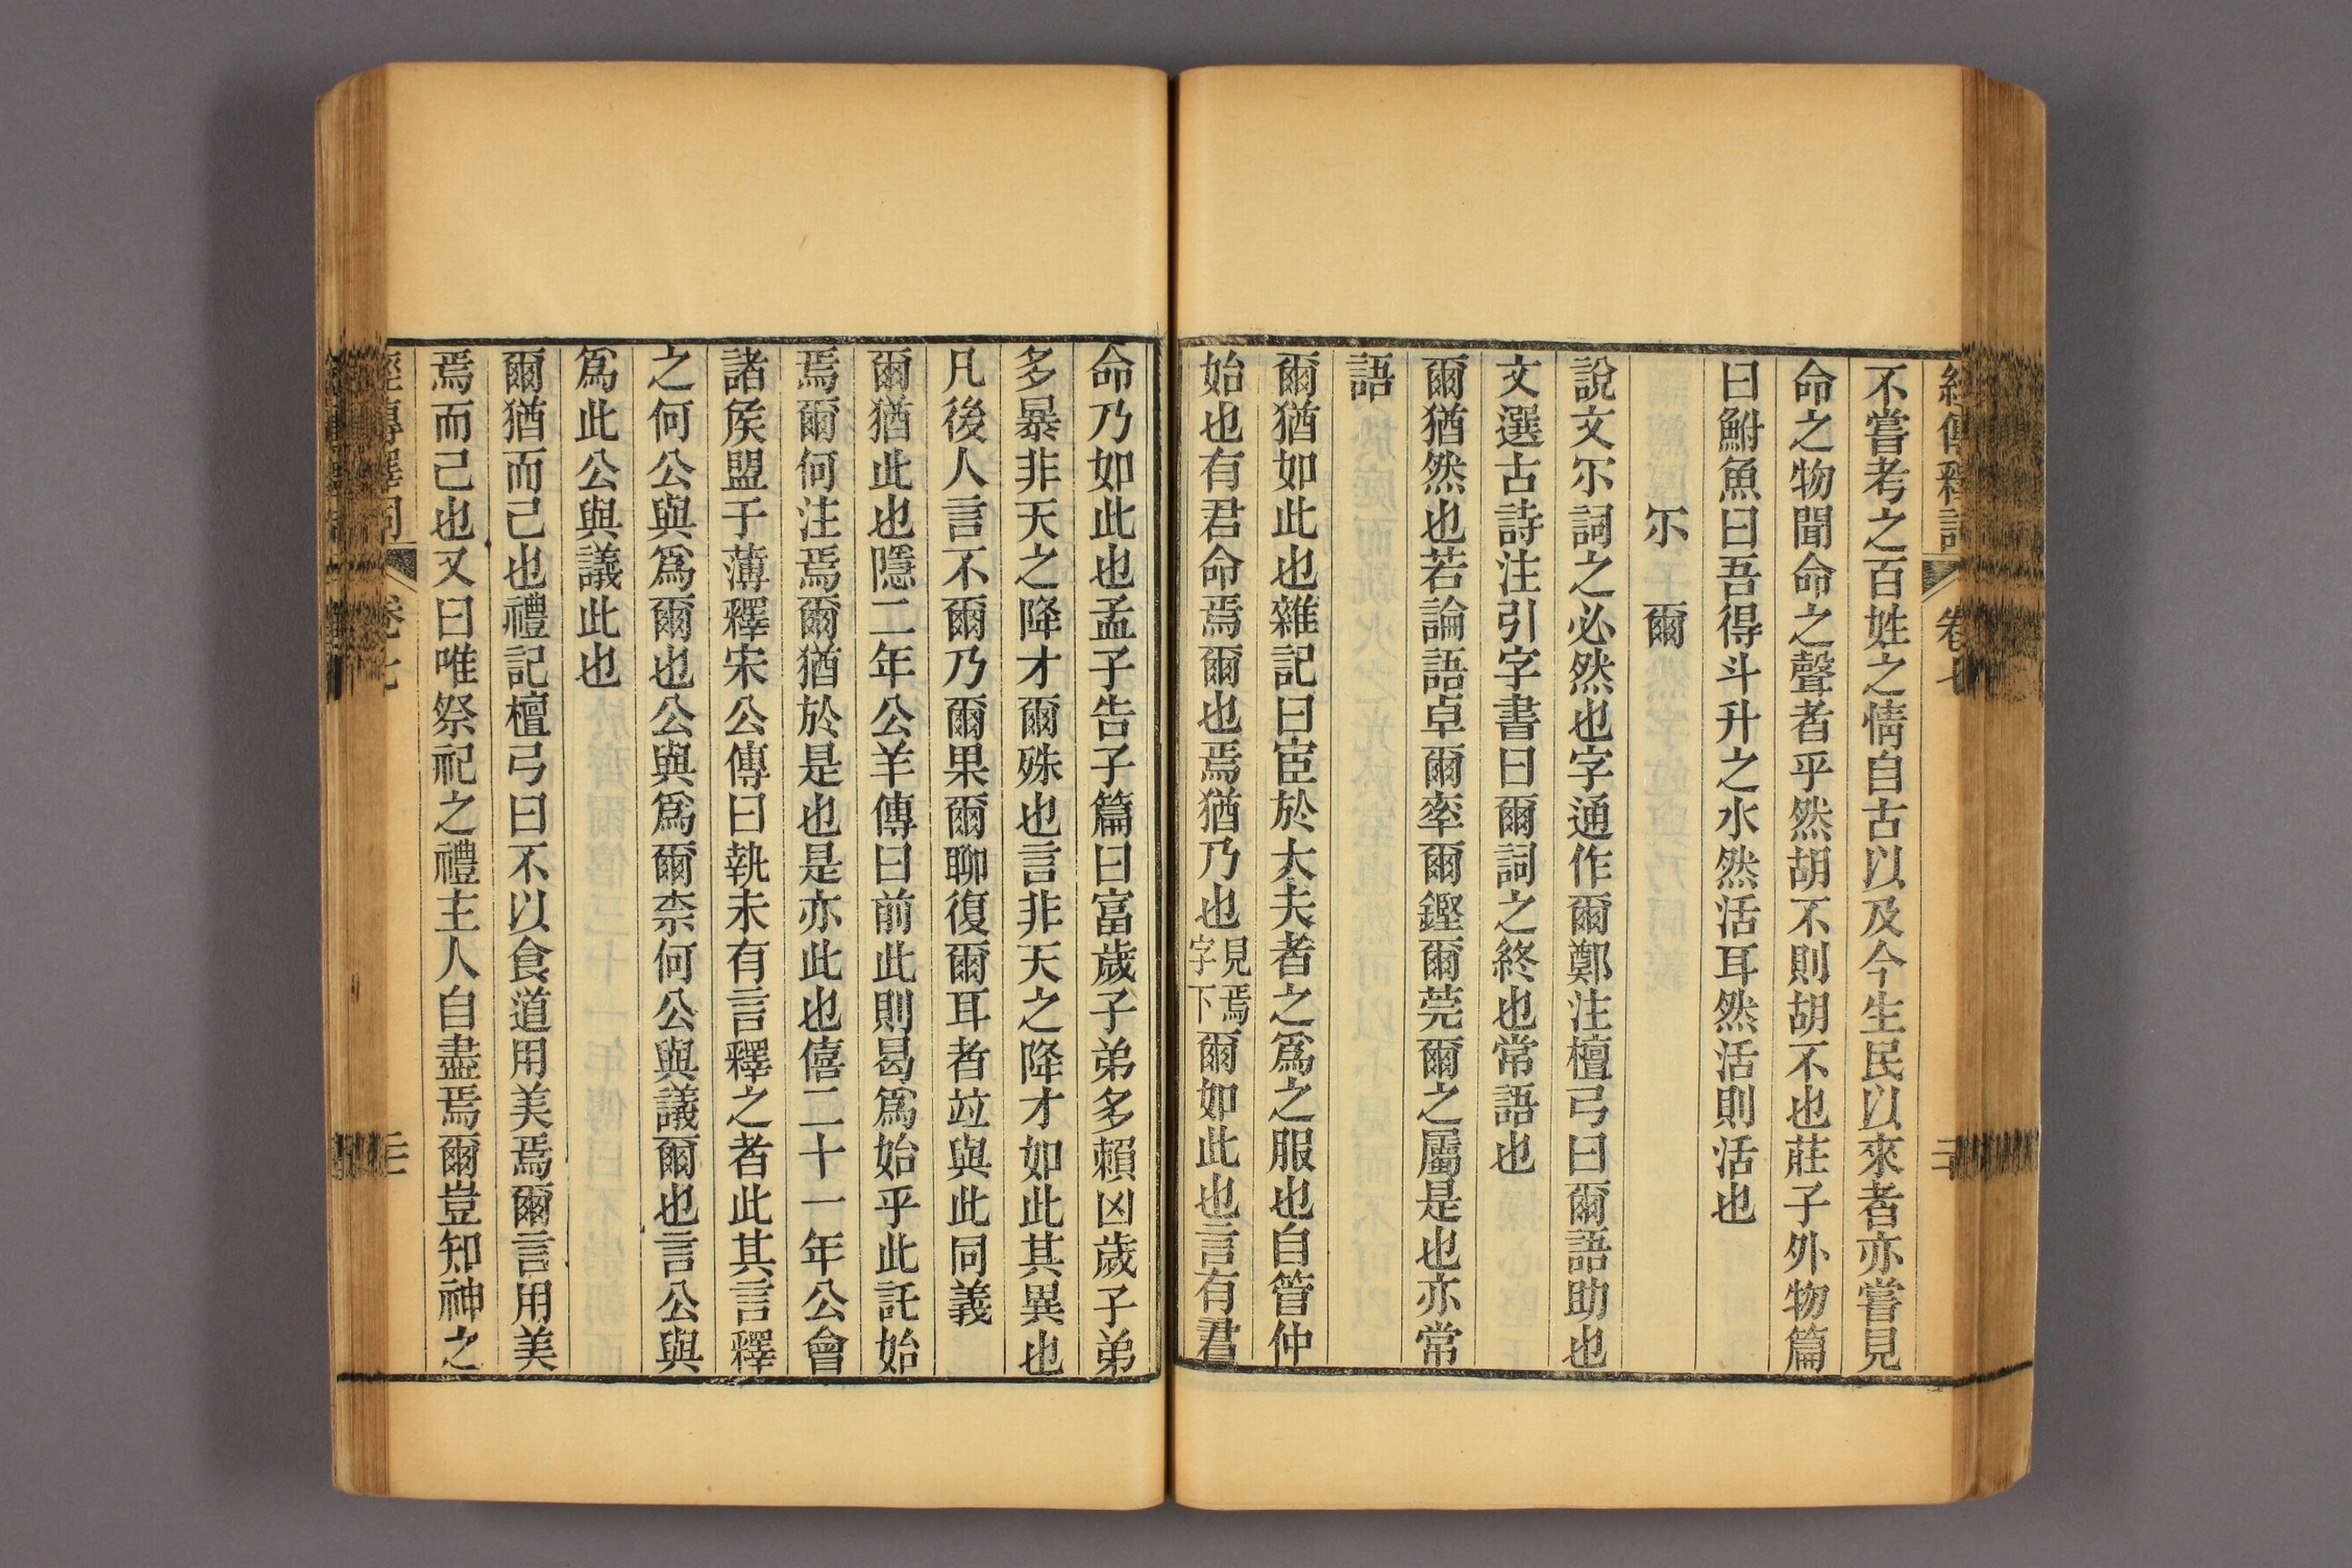 經傳釋詞 卷七 二十
不嘗考之百姓之情自古以及今生民以來者亦嘗見
命之物聞命之聲者乎然胡不則胡不也莊子外物篇
曰鮒魚曰吾得斗升之水然活耳然活則活也
尒 爾
說文尒詞之必然也字通作爾鄭注檀弓曰爾語助也
文選古詩注引字書曰爾詞之終也常語也
爾猶然也若論語卓爾率爾鏗爾莞爾之屬是也亦常
語
爾猶如此也雜記曰宦於大夫者之爲之服也自管仲
始也有君命焉爾也焉猶乃也見焉字下爾如此也言有君
命乃如此也孟子告子篇曰富歲子弟多賴凶歲子弟
多暴非天之降才爾殊也言非天之降才如此其異也
凡後人言不爾乃爾果爾聊復爾耳者竝與此同義
爾猶此也隱二年公羊傳曰前此則曷爲始乎此託始
焉爾何注焉爾猶於是也是亦此也僖二十一年公會
諸矦盟于薄釋宋公傳曰執未有言釋之者此其言釋
之何公與爲爾也公與爲爾柰何公與議爾也言公與
爲此公與議此也
爾猶而已也禮記檀弓曰不以食道用美焉爾言用美
焉而已也又曰唯祭祀之禮主人自盡焉爾豈知神之
經傳釋詞 卷七